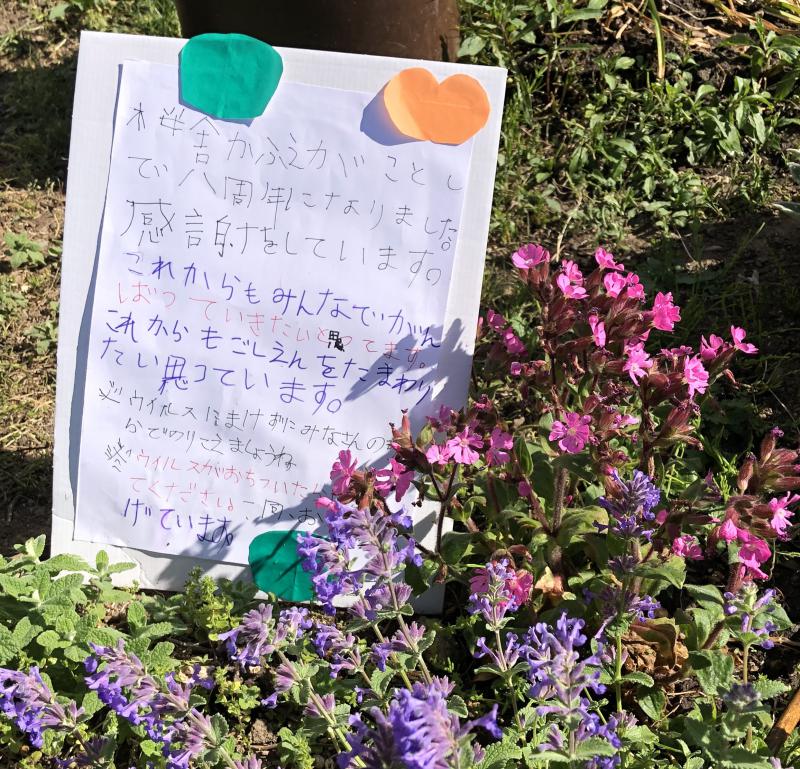 木洋舎かふえがことし
で八周年になりました。
感謝をしています。
これからもみんなでがん
ばっていきたいと思ってます。
これからもごしえんをたまわり
たい思っています。
※ウイルスにまけずにみなさんの
でのりこえましょうね
※ウイルスがおちついた
てください一同
げています。